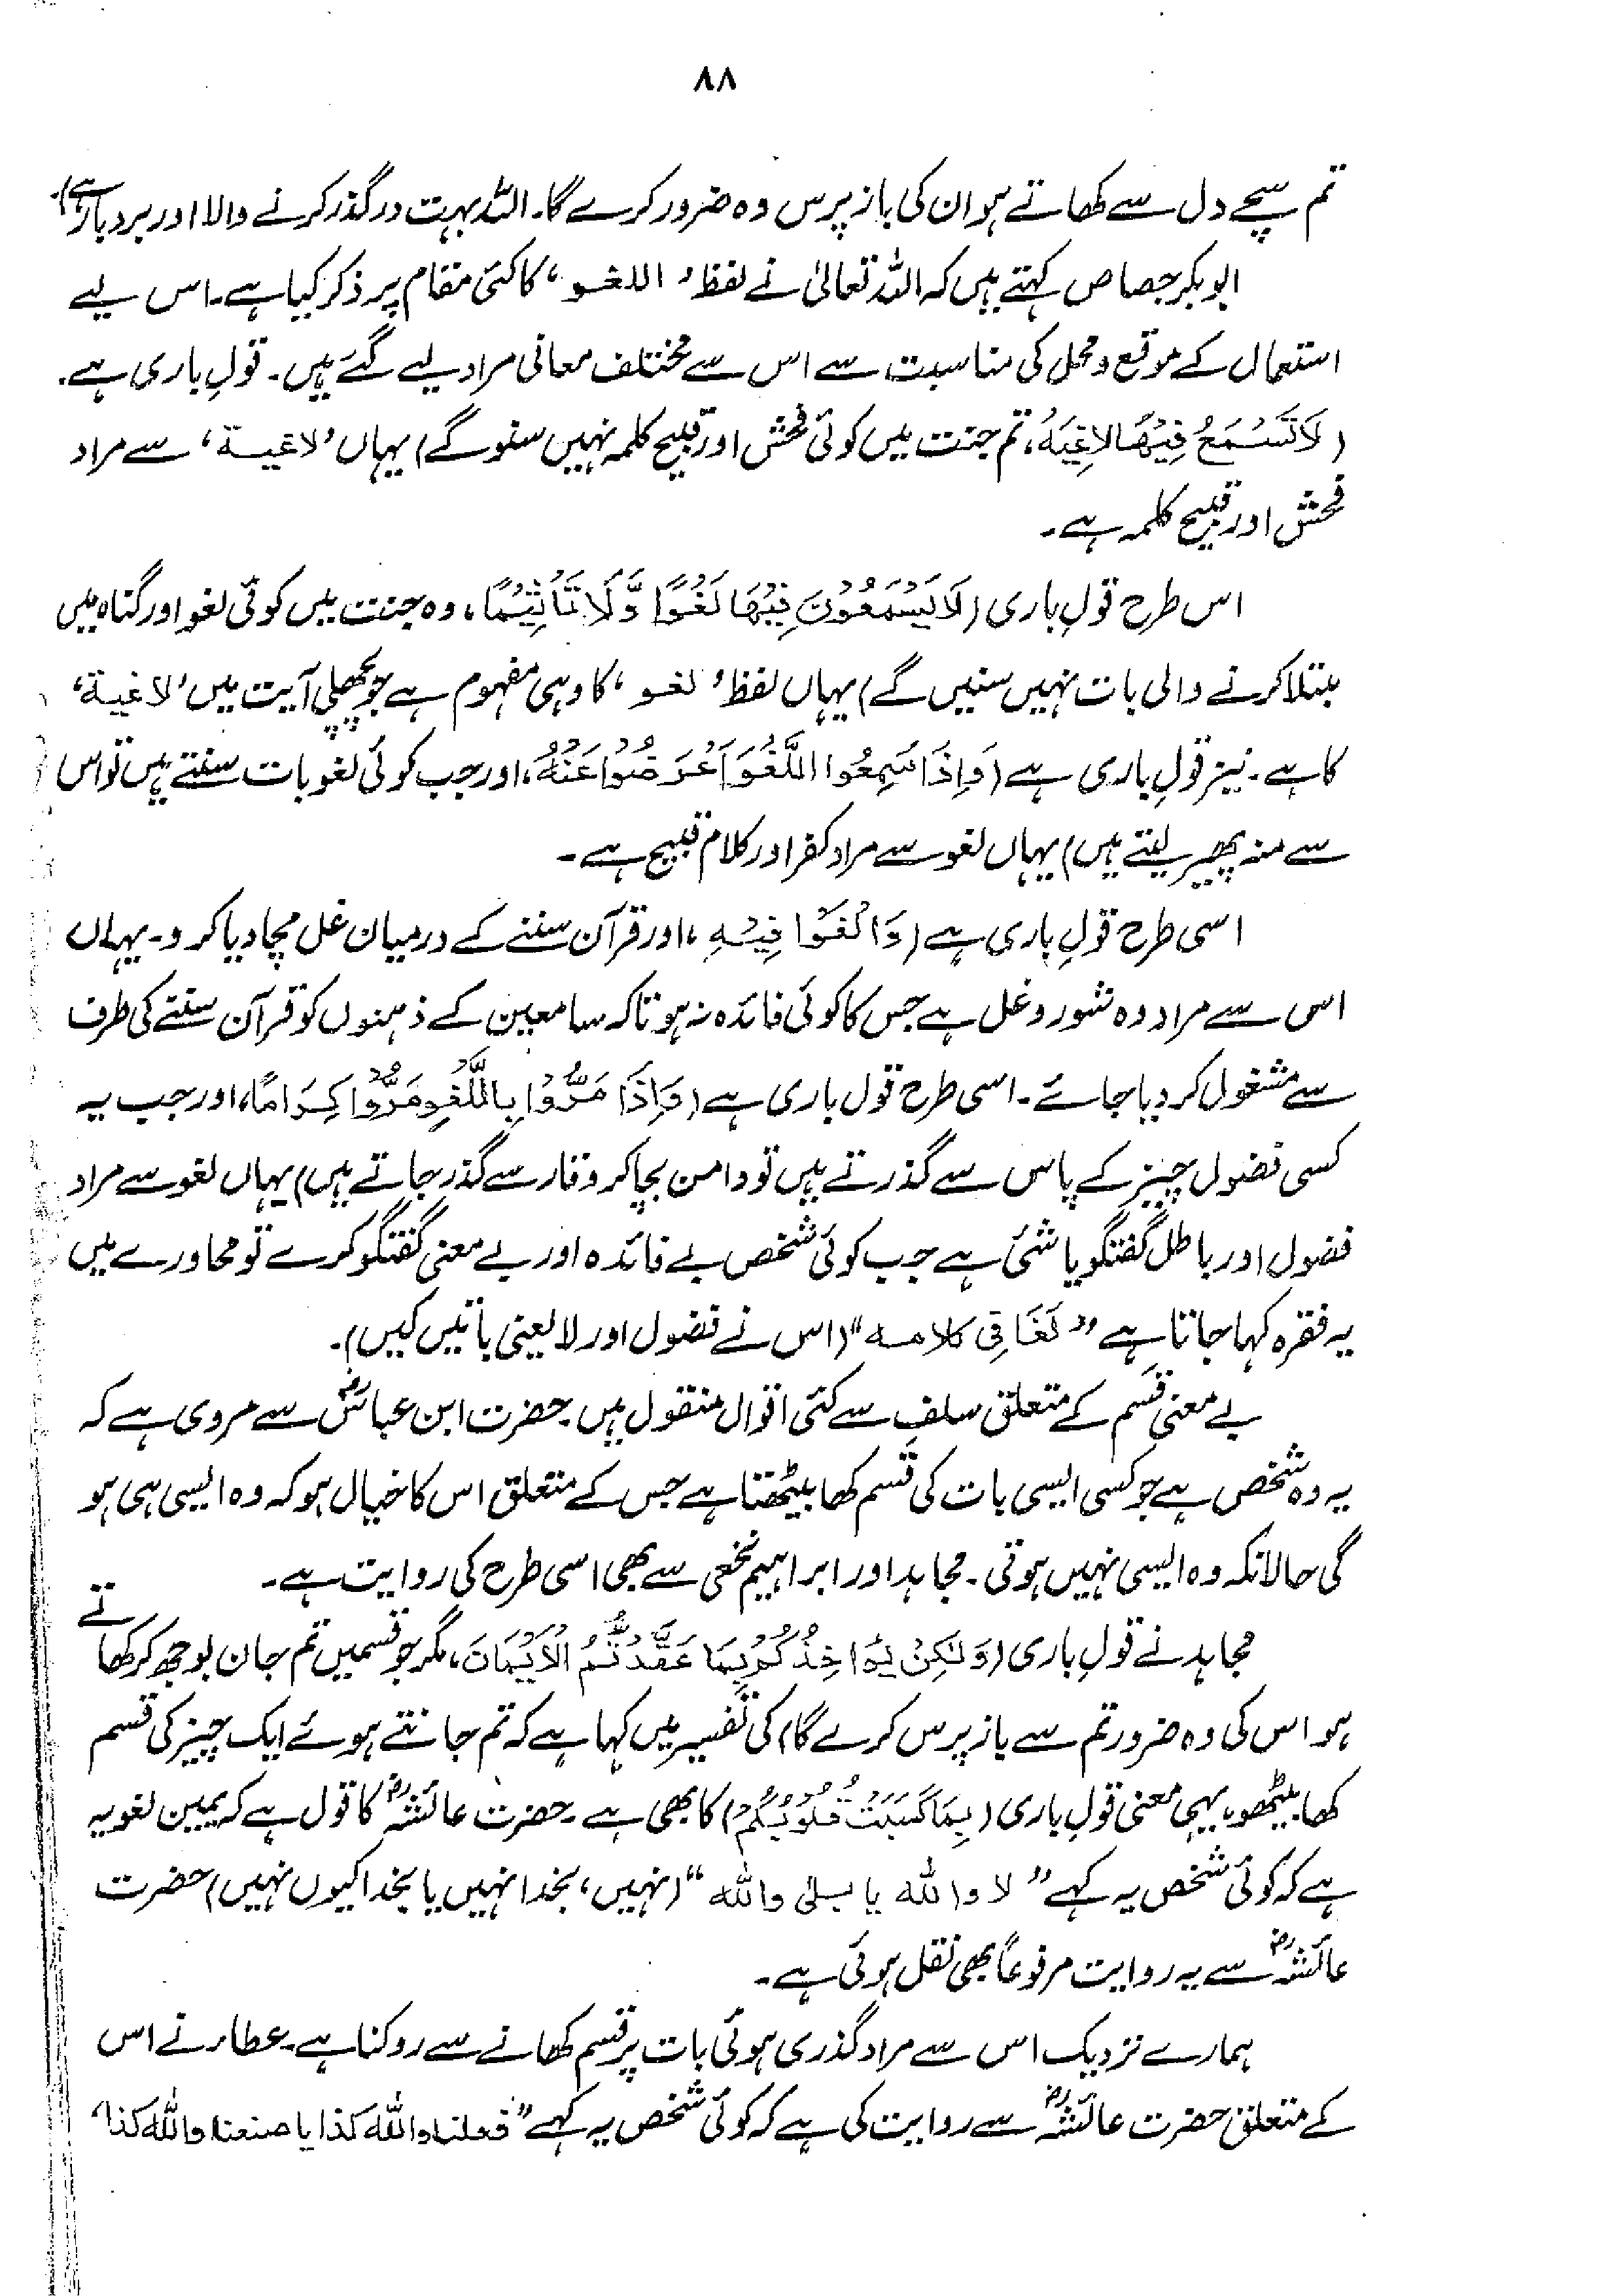 ۸۸
تم سچے دل سے کھاتے ہو ان کی باز پرس وہ ضرور کرے گا۔ اللہ بہت درگذر کرنے والا اور بردبار ہے)۔
ابوبکر جصاص کہتے ہیں کہ اللہ تعالیٰ نے لفظ ' اللغو ' کا کئی مقام پر ذکر کیا ہے۔ اس لیے
استعمال کے موقع و محل کی مناسبت سے اس سے مختلف معانی مراد لیے گئے ہیں۔ قولِ باری ہے۔
(لَا تَسْمَعُ فِیْهَا لَاغِیَةً، تم جنت میں کوئی فحش اور قبیح کلمہ نہیں سنو گے) یہاں ' لاغیة ' سے مراد
فحش اور قبیح کلمہ ہے۔
اس طرح قولِ باری (لَا یَسْمَعُوْنَ فِیْهَا لَغْوًا وَّلَا تَأْثِیْمًا، وہ جنت میں کوئی لغو اور گناہ میں
مبتلا کرنے والی بات نہیں سنیں گے) یہاں لفظ ' لغو ' کا وہی مفہوم ہے جو پچھلی آیت میں ' لاغیة '
کا ہے۔ نیز قولِ باری ہے (وَاِذَا سَمِعُوا اللَّغْوَ اَعْرَضُوْا عَنْهُ، اور جب کوئی لغو بات سنتے ہیں تو اس
سے منہ پھیر لیتے ہیں) یہاں لغو سے مراد کفر اور کلام قبیح ہے۔
اسی طرح قولِ باری ہے (وَالْغَوْا فِیْهِ، اور قرآن سننے کے درمیان غل مچا دیا کرو۔ یہاں
اس سے مراد وہ شور و غل ہے جس کا کوئی فائدہ نہ ہو تاکہ سامعین کے ذہنوں کو قرآن سننے کی طرف
سے مشغول کر دیا جائے۔ اسی طرح قول باری ہے (وَاِذَا مَرُّوْا بِاللَّغْوِ مَرُّوْا کِرَامًا، اور جب یہ
کسی فضول چیز کے پاس سے گذرتے ہیں تو دامن بچا کر وقار سے گذر جاتے ہیں) یہاں لغو سے مراد
فضول اور باطل گفتگو یا شئی ہے جب کوئی شخص بے فائدہ اور بے معنی گفتگو کرے تو محاورے میں
یہ فقرہ کہا جاتا ہے " لَغَا فِی کلامه " (اس نے فضول اور لا یعنی باتیں کیں)۔
بے معنی قَسم کے متعلق سلف سے کئی اقوال منقول ہیں۔ حضرت ابن عباسؓ سے مروی ہے کہ
یہ وہ شخص ہے جو کسی ایسی بات کی قسم کھا بیٹھتا ہے جس کے متعلق اس کا خیال ہو کہ وہ ایسی ہی ہو
گی حالانکہ وہ ایسی نہیں ہوتی۔ مجاہد اور ابراہیم نخعی سے بھی اسی طرح کی روایت ہے۔
مجاہد نے قولِ باری (وَلٰکِنْ یُّؤَاخِذُکُمْ بِمَا عَقَّدْتُّمُ الْاَیْمَانَ، مگر جو قسمیں تم جان بوجھ کر کھاتے
ہو اس کی وہ ضرور تم سے باز پرس کرے گا) کی تفسیر میں کہا ہے کہ تم جانتے ہوئے ایک چیز کی قسم
کھا بیٹھو، یہی معنی قولِ باری (بِمَا کَسَبَتْ قُلُوْبُکُمْ) کا بھی ہے۔ حضرت عائشہؓ کا قول ہے کہ یمین لغو یہ
ہے کہ کوئی شخص یہ کہے " لا والله یا بلیٰ والله " (نہیں، بخدا نہیں یا بخدا کیوں نہیں) حضرت
عائشہؓ سے یہ روایت مرفوعاً بھی نقل ہوئی ہے۔
ہمارے نزدیک اس سے مراد گذری ہوئی بات پر قسم کھانے سے روکنا ہے۔ عطاء نے اس
کے متعلق حضرت عائشہؓ سے روایت کی ہے کہ کوئی شخص یہ کہے " فعلنا والله کذا یا صنعنا والله کذا '